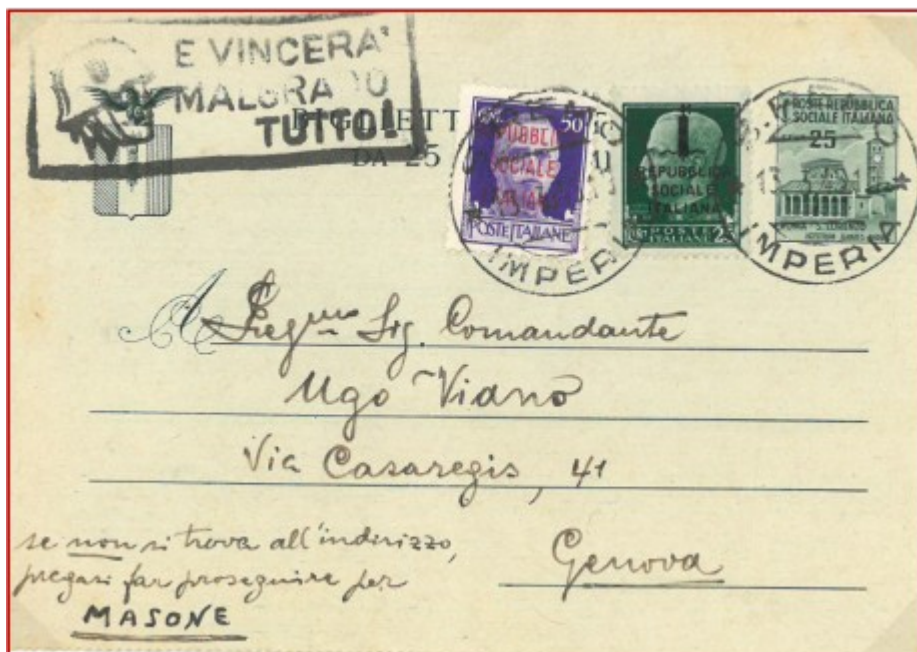 E VINCERA'
MALGRADO
TUTTO!
BIGLIETT
DA 25
50
REPUBBLI
SOCIALE
ITALIANA
POSTE ITALIANE
REPUBBLICA
SOCIALE
ITALIANA
POSTE
ITALIANE
25
POSTE REPUBBLICA
SOCIALE ITALIANA
25
IMPERIA
IMPERIA
A Preg.mo Sig. Comandante
Ugo Viano
Via Casaregis, 41
Genova
se non si trova all'indirizzo,
pregasi far proseguire per
MASONE